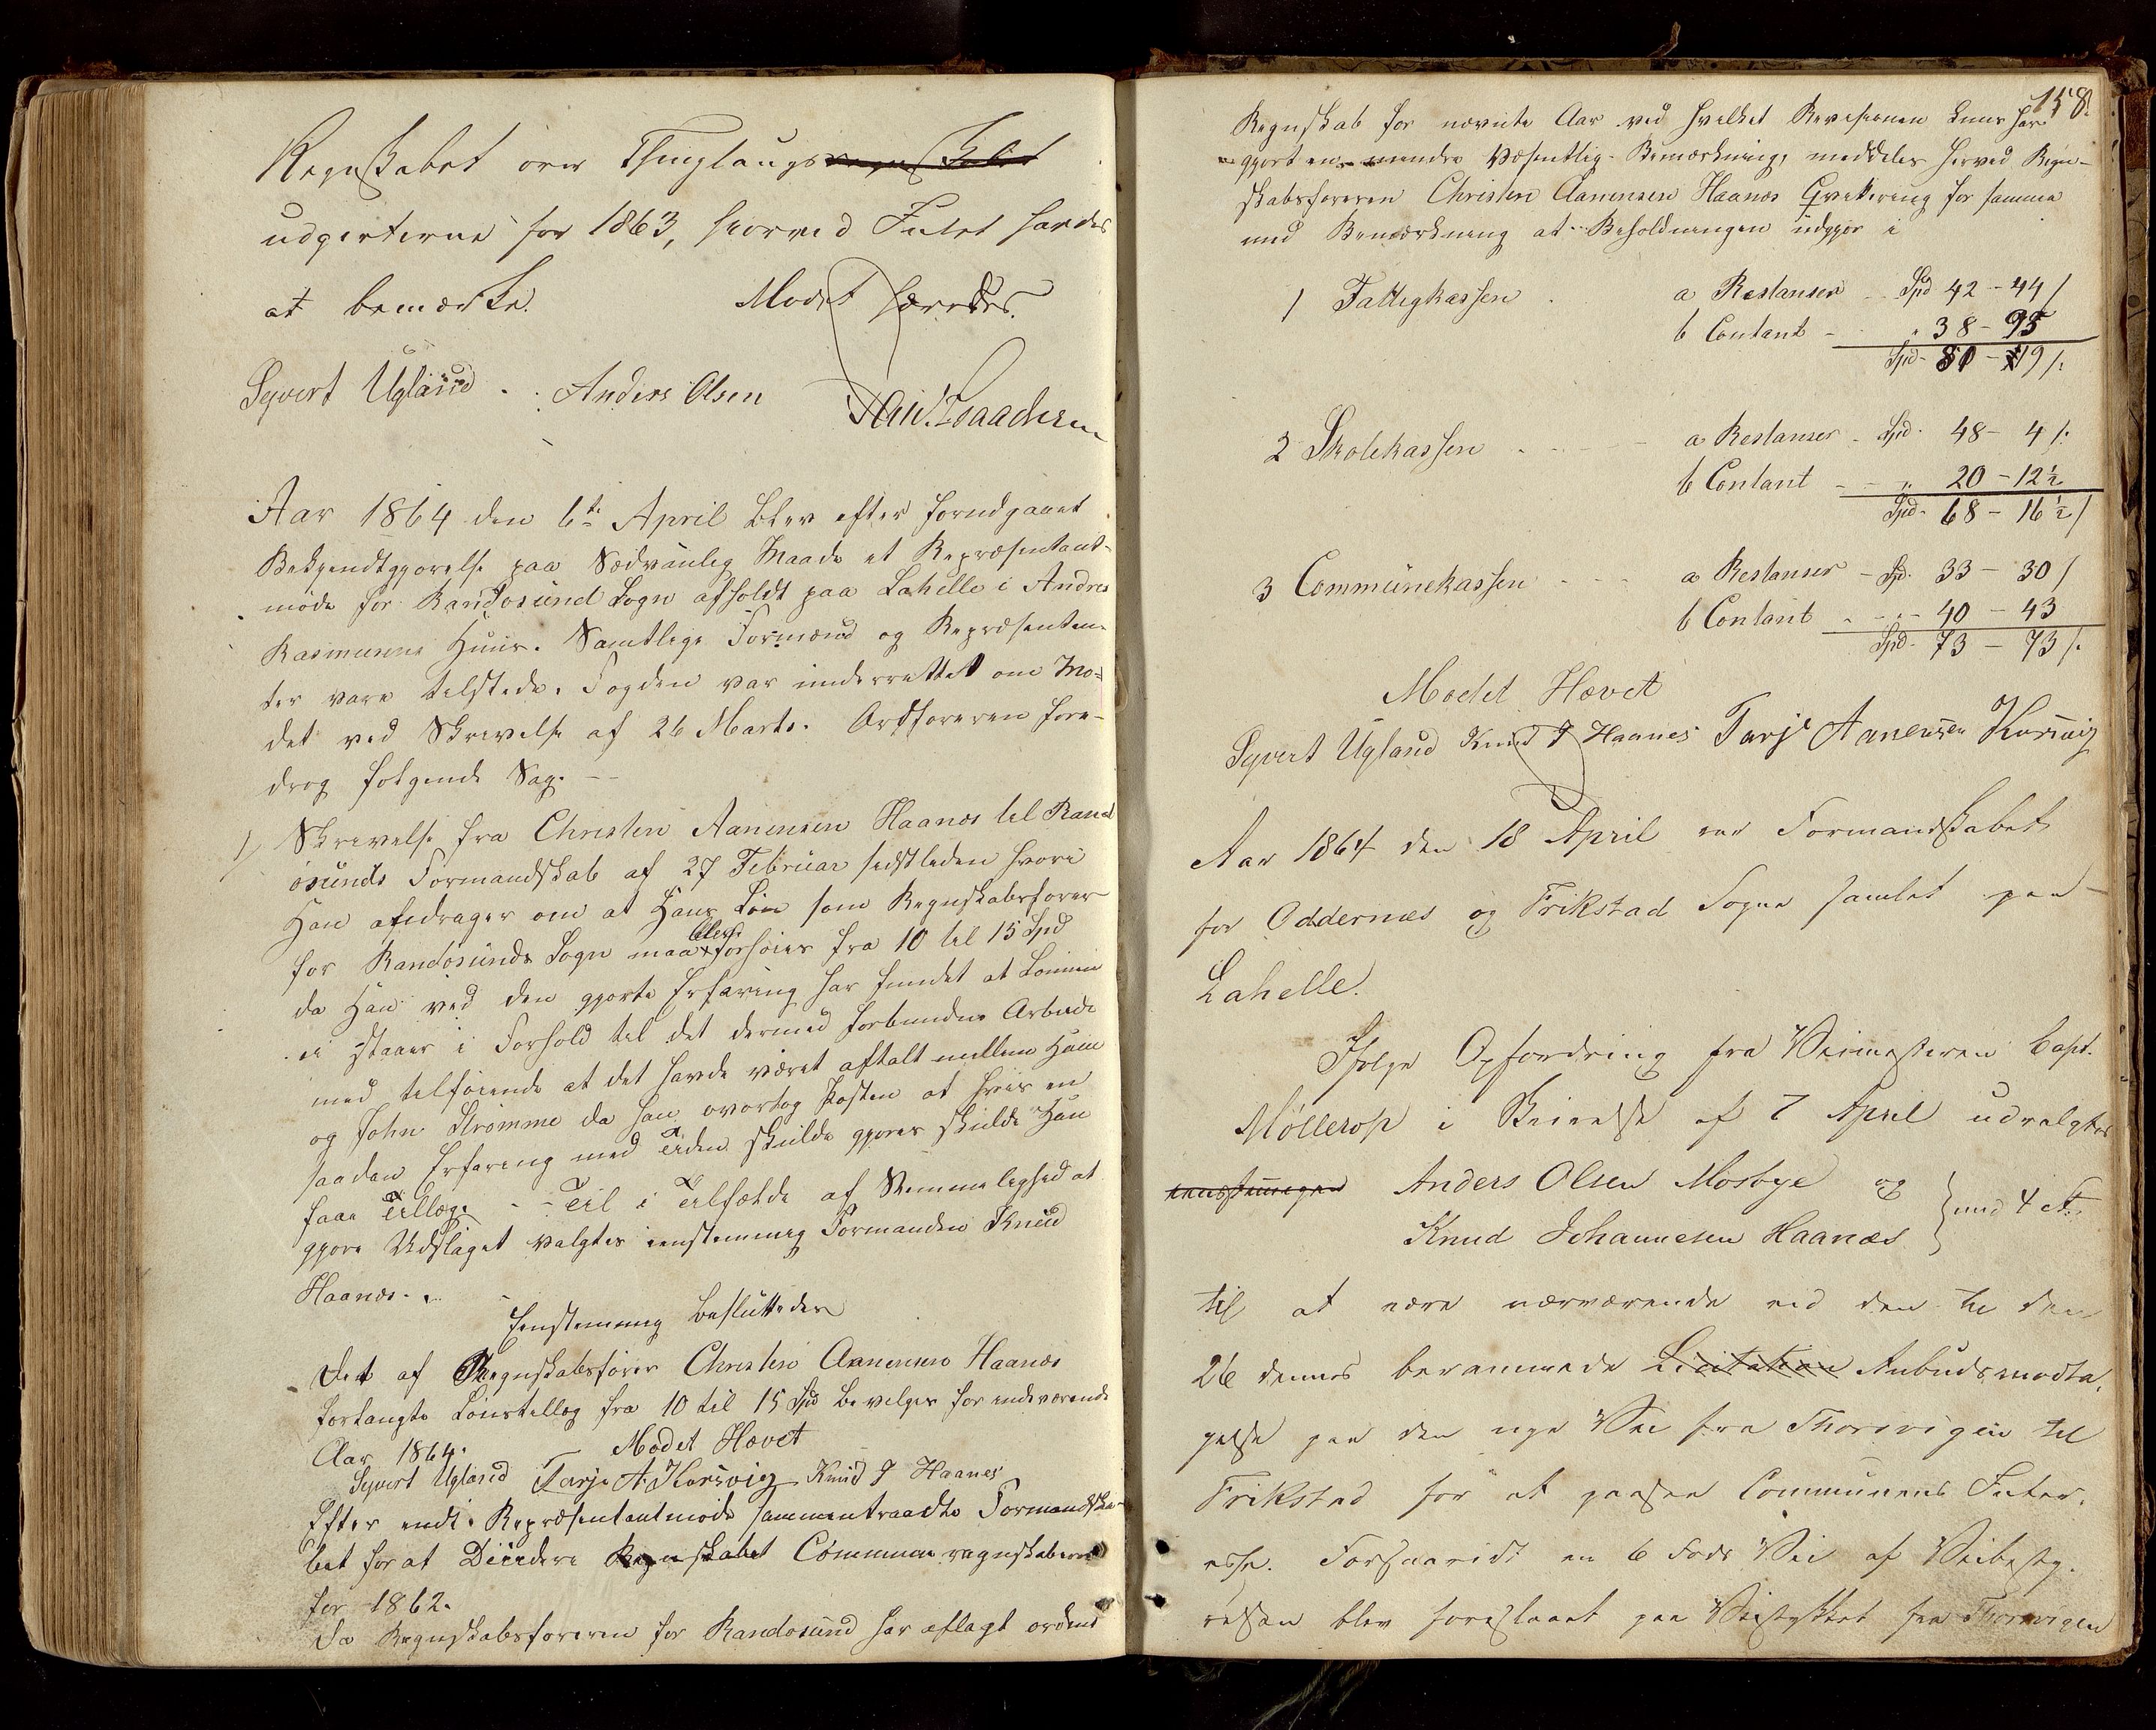 Regnskabet over Thinglaugs regnskabet
udgifterne for 1863, hvorved Intet havdes
at bemærke. Mødet hævedes.
Syvert Ugland Anders Olsen
Aar 1864 den 6te April blev efter forudgaaet
Bekjendtgjørelse paa Sædvanlig Maade et Repræsentant-
møde for Randøsund Sogn afholdt paa Lahelle i Andres
Rasmusens Huus. Samtlige Formænd og Repræsentan-
ter vare tilstede. Fogden var underrettet om Mø-
det ved Skrivelse af 26 Marts. Ordføreren fore-
drog følgende Sag. --
1/ Skrivelse fra Christen Aanensen Haanæs til Rand
øsunds Formandskab af 27 Februar sidstleden hvori
Han andrager om at Hans Løn som Regnskabsfører
for Randøsunds Sogn maa blive forhøiet fra 10 til 15 Spd
da Han ved den gjorte Erfaring har fundet at Lønnen
ei staaer i Forhold til det dermed forbundne Arbeide
med tilføiende at det havde været aftalt mellem Ham
og John Strømme da han overtog Posten at hvis en
saadan Erfaring med Tiden skulde gjøres skulde Han
faae Tillæg. -- Til i Tilfælde af Stemmelighed at
gjøre Udslaget valgtes eenstemmig Formanden Knud
Haanæs. -
Eenstemmig besluttedes
Det af Regnskabsfører Christen Aanensen Haanæs
forlangte Lønstillæg fra 10 til 15 Spd bevilges for indeværende
Aar 1864. Mødet Hævet
Syvert Ugland Tarje A. Korsvig Knud J Haanes
Efter endt Repræsentantmøde sammentraadte Formandska-
bet for at Decidere Regnskabet Commune regnskaberne
for 1862.
Da Regnskabsføreren for Randøsund har aflagt ordens
158.
Regnskab for nævnte Aar ved hvilket Revisionen har
gjort en mindre Væsentlig Bemærkning, meddeles herved Regn-
skabsføreren Christen Aanensen Haanæs Qvittering for samme
med Bemærkning at Beholdningen udgjør i
1 Fattigkassen a Restanser Spd 42 - 44 /
b Contant - " 38 - 95
Spd - 81 - 19 /.
2 Skolekassen a Restanser - Spd. 48 - 4 /.
b Contant - " 20 - 12 ½
Spd - 68 - 16 ½ /
3 Communekassen a Restanser - Spd. 33 - 30 /
b Contant - " 40 - 43
Spd - 73 - 73 /.
Mødet Hævet
Syvert Ugland Knud J Haanes Tarje Aanensen Korsvig
Aar 1864 den 18 April var Formandskabet
for Oddernæs og Frikstad Sogne samlet paa
Lahelle.
Ifølge Opfordring fra Veimesteren Capt.
Møllerop i Skrivelse af 7 April udvalgtes
Anders Olsen Mosbye og
Knud Johannesen Haanæs } med 4 St.
til at være nærværende ved den til den
26 dennes berammede Licitation Anbudsmodta-
gelse paa den nye Vei fra Thorsvigen til
Frikstad for at paasee Communens Inter-
esse. Forsaavidt en 6 Fods Vei af Veibesty-
relsen blev foreslaaet paa Veistykket fra Thorsvigen